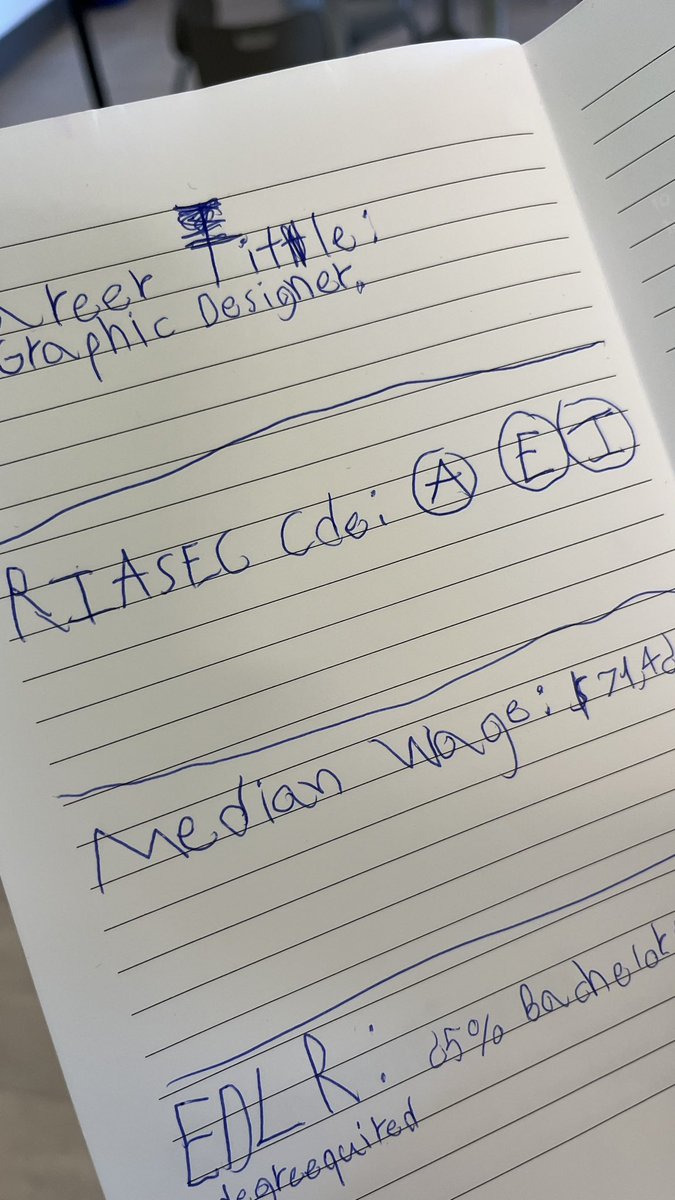 areer Tittle:
Graphic Designer.
RIASEC Cde: A E I
Median Wage:
EDLR: 65% Bachelor
degreequired